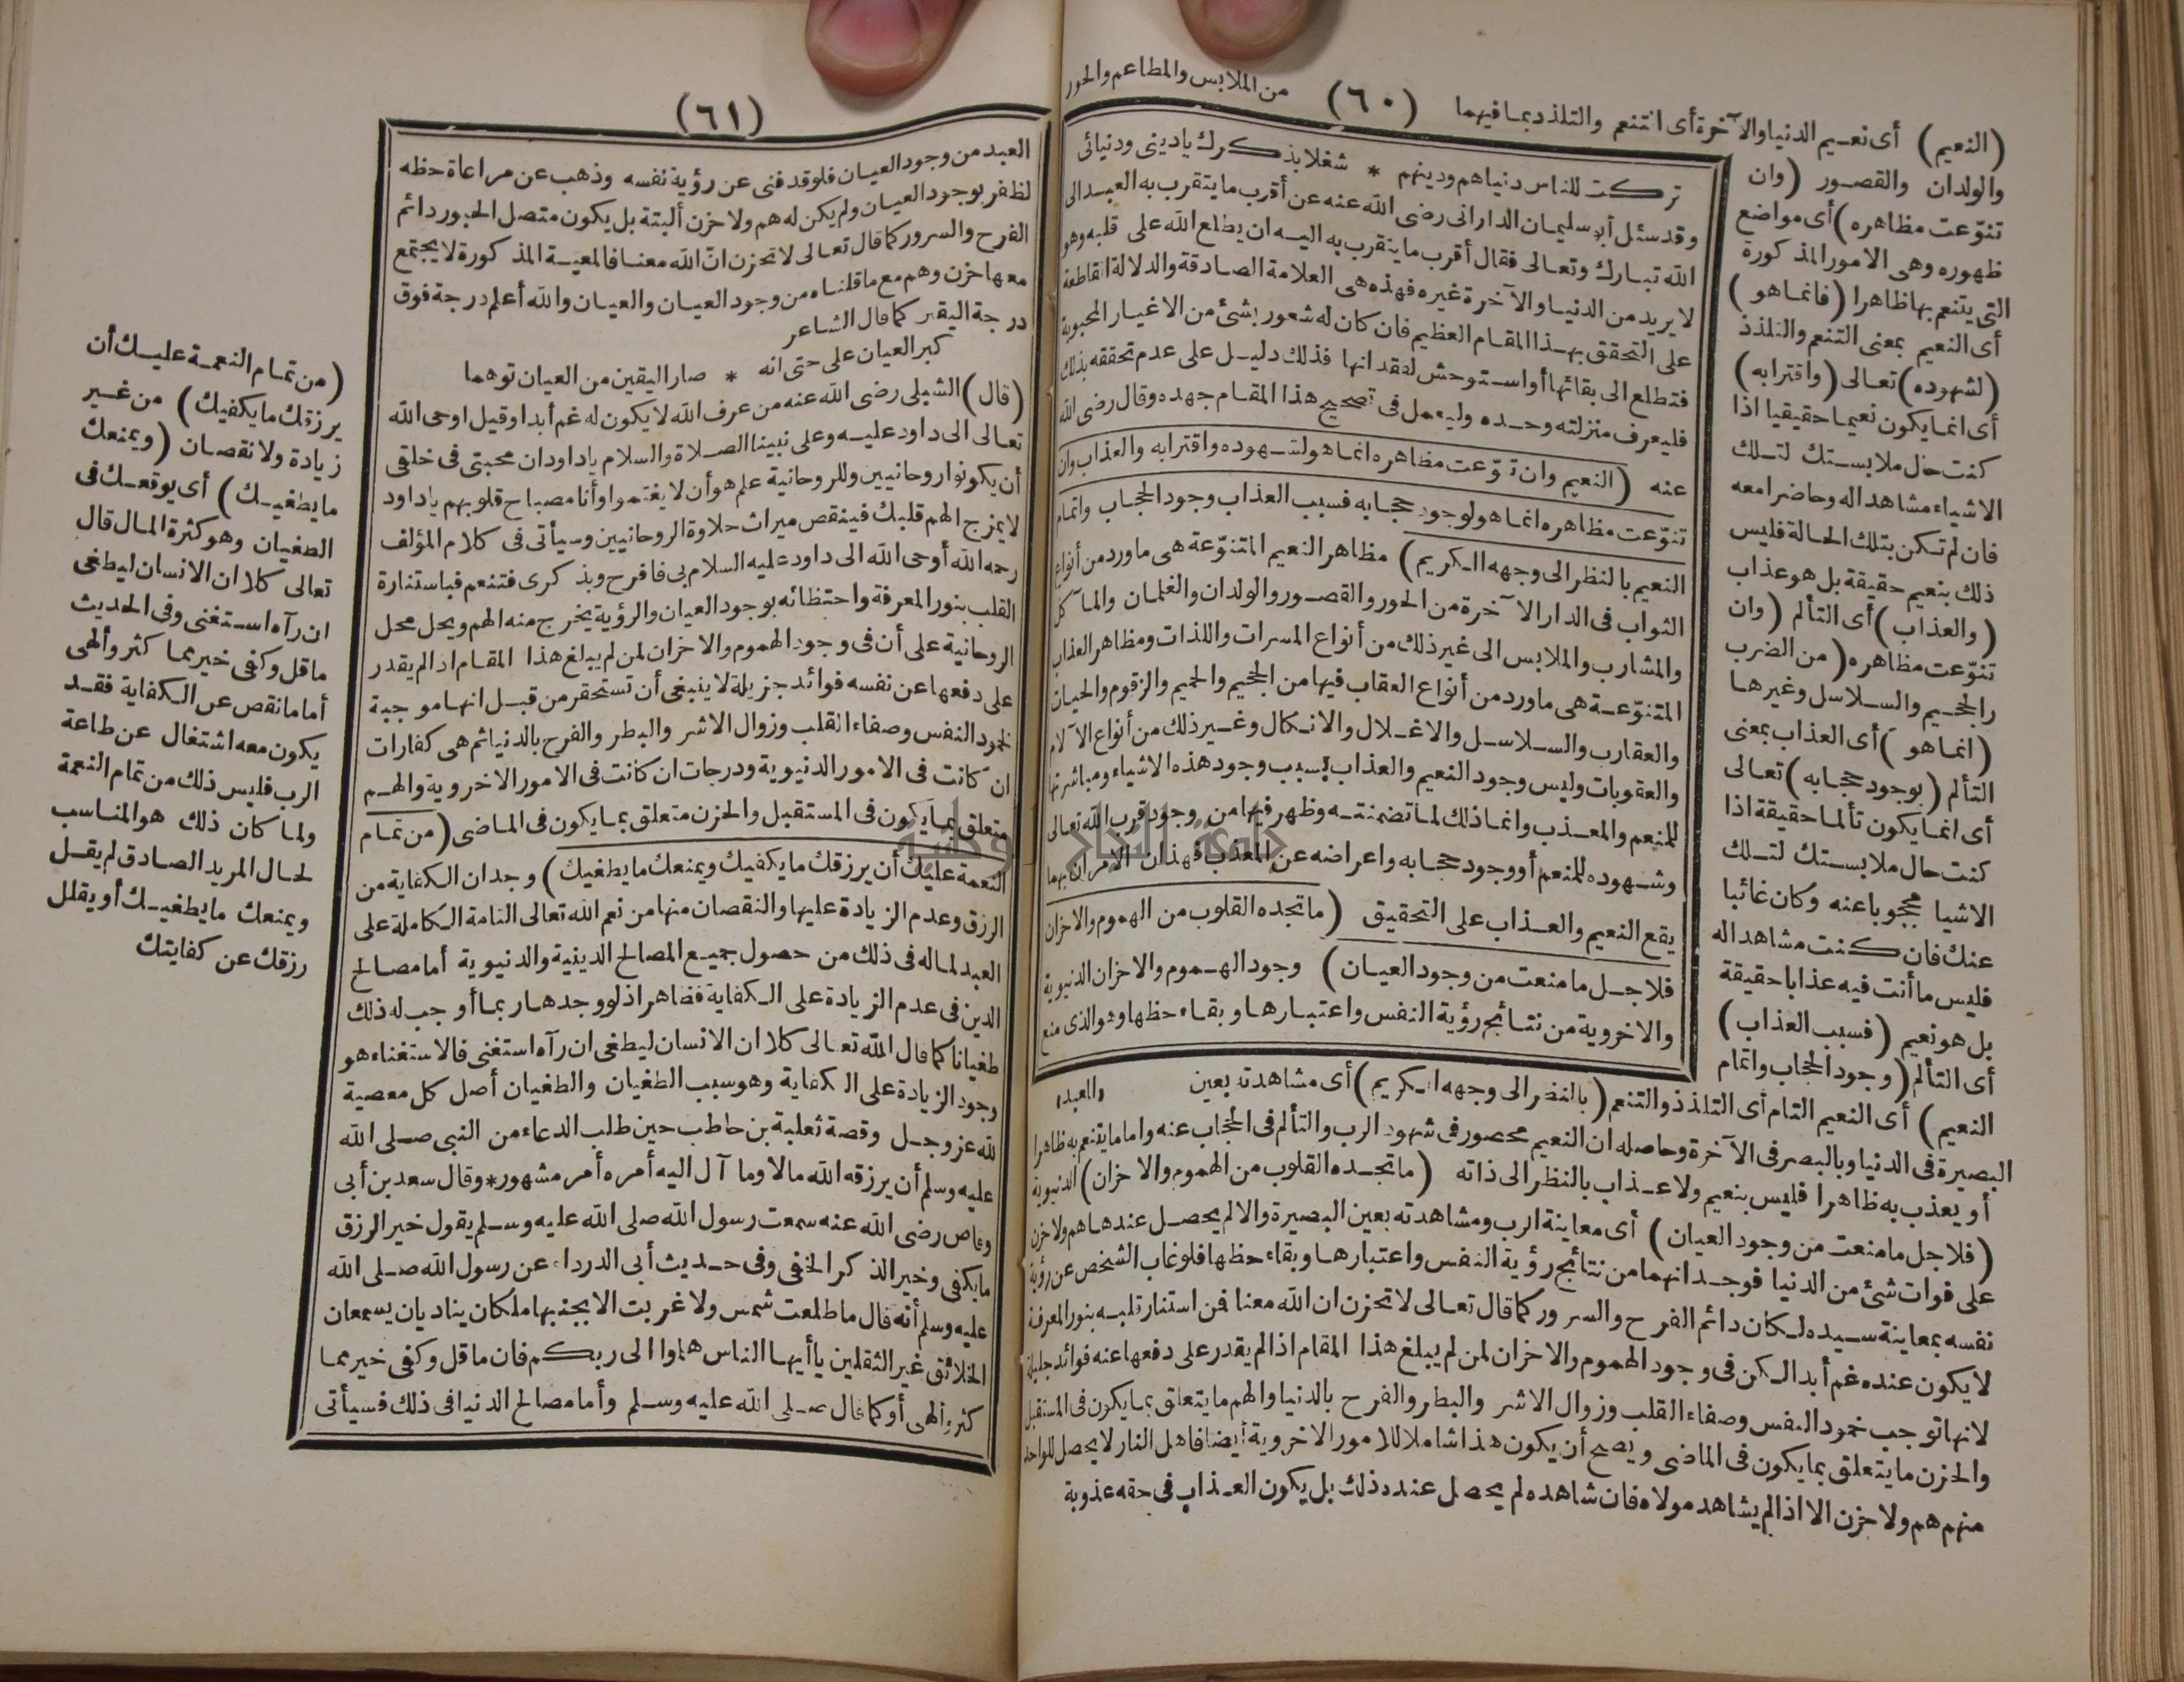 (٦٠)
من الملابس والمطاعم والحور
(النعيم) أى نعيم الدنيا والآخرة أى التنعم والتلذذ بما فيهما
والولدان والقصور (وان
تنوّعت مظاهره) أى مواضع
ظهوره وهى الامور المذكورة
التى يتنعم بها ظاهرا (فانما هو)
أى النعيم بمعنى التنعم والتلذذ
(لشهوده) تعالى (واقترابه)
أى انما يكون نعيما حقيقيا اذا
كنت حال ملابستك لتلك
الاشياء مشاهدا له وحاضرا معه
فان لم تكن بتلك الحالة فليس
ذلك بنعيم حقيقة بل هو عذاب
(والعذاب) أى التألم (وان
تنوّعت مظاهره (من الضرب
والجحيم والسلاسل وغيرها
(انما هو) أى العذاب بمعنى
التألم (بوجود حجابه) تعالى
أى انما يكون تألما حقيقة اذا
كنت حال ملابستك لتلك
الاشيا محجوبا عنه وكان غائبا
عنك فان كنت مشاهدا له
فليس ما أنت فيه عذابا حقيقة
بل هو نعيم (فسبب العذاب)
أى التألم (وجود الحجاب واتمام
تركت للناس دنياهم ودينهم * شغلا بذكرك يادينى ودنيائى
وقد سئل أبو سليمان الدارانى رضى الله عنه عن أقرب ما يتقرب به العبد الى
الله تبارك وتعالى فقال أقرب ما يتقرب به اليه ان يطلع الله على قلبه وهو
لا يريد من الدنيا والآخرة غيره فهذه هى العلامة الصادقة والدلالة القاطعة
على التحقق بهذا المقام العظيم فان كان له شعور بشئ من الاغيار المحبوبة
فتطلع الى بقائها أو استوحش لفقدانها فذلك دليل على عدم تحققه بذلك
فليعرف منزلته وحده وليعمل فى تصحيح هذا المقام جهده وقال رضى الله
عنه (النعيم وان تنوّعت مظاهره انما هو لشهوده واقترابه والعذاب وان
تنوّعت مظاهره انما هو لوجود حجابه فسبب العذاب وجود الحجاب واتمام
النعيم بالنظر الى وجهه الكريم) مظاهر النعيم المتنوّعة هى ما ورد من أنواع
الثواب فى الدار الآخرة من الحور والقصور والولدان والغلمان والمآكل
والمشارب والملابس الى غير ذلك من أنواع المسرات واللذات ومظاهر العذاب
المتنوّعة هى ما ورد من أنواع العقاب فيها من الجحيم والحميم والزقوم والحيات
والعقارب والسلاسل والاغلال والانكال وغير ذلك من أنواع الآلام
والعقوبات وليس وجود النعيم والعذاب بسبب وجود هذه الاشياء ومباشرتها
للمنعم والمعذب وانما ذلك لما تضمنته وظهر فيها من وجود قرب الله تعالى
وشهوده للمنعم أو وجود حجابه واعراضه عن المعذب فهذان الامران بهما
يقع النعيم والعذاب على التحقيق (ما تجده القلوب من الهموم والاحزان
فلاجل ما منعت من وجود العيان) وجود الهموم والاحزان الدنيوية
والاخروية من نتائج رؤية النفس واعتبارها وبقاء حظها وهو الذى منع
«العبد»
النعيم) أى النعيم التام أى التلذذ والتنعم (بالنظر الى وجهه الكريم) أى مشاهدته بعين
البصيرة فى الدنيا وبالبصر فى الآخرة وحاصله ان النعيم محصور فى شهود الرب والتألم فى الحجاب عنه واما ما يتنعم به ظاهرا
أو يعذب به ظاهرا فليس بنعيم ولا عذاب بالنظر الى ذاته (ما تجده القلوب من الهموم والاحزان) الدنيوية
(فلاجل ما منعت من وجود العيان) أى معاينة الرب ومشاهدته بعين البصيرة والا لم يحصل عندها هم ولا حزن
على فوات شئ من الدنيا فوجدانهما من نتائج رؤية النفس واعتبارها وبقاء حظها فلو غاب الشخص عن رؤية
نفسه بمعاينة سيده لكان دائم الفرح والسرور كما قال تعالى لا تحزن ان الله معنا فمن استنار قلبه بنور المعرفة
لا يكون عنده غم أبدا لكن فى وجود الهموم والاحزان لمن لم يبلغ هذا المقام اذ الم يقدر على دفعها عنه فوائد جليلة
لانها توجب خمود النفس وصفاء القلب وزوال الاشر والبطر والفرح بالدنيا والهم ما يتعلق بما يكون فى المستقبل
والحزن ما يتعلق بما يكون فى الماضى ويصح أن يكون هذا شاملا للامور الاخروية أيضا فاهل النار لا يحصل للواحد
منهم هم ولا حزن الا اذا لم يشاهد مولاه فان شاهده لم يحصل عنده ذلك بل يكون العذاب فى حقه عذوبة
(٦١)
العبد من وجود العيان فلو قد فنى عن رؤية نفسه وذهب عن مراعاة حظه
لظفر بوجود العيان ولم يكن له هم ولا حزن ألبتة بل يكون متصل الحبور دائم
الفرح والسرور كما قال تعالى لا تحزن انّ الله معنا فالمعية المذكورة لا يجتمع
معها حزن وهم مع ما قلناه من وجود العيان والعيان والله أعلم درجة فوق
درجة اليقين كما قال الشاعر
كبر العيان على حتى انه * صار اليقين من العيان توهما
(قال) الشبلى رضى الله عنه من عرف الله لا يكون له غم أبدا وقيل اوحى الله
تعالى الى داود عليه وعلى نبينا الصلاة والسلام ياداود ان محبتى فى خلقى
أن يكونوا روحانيين وللروحانية علم هو أن لا يغتموا وأنا مصباح قلوبهم ياداود
لا يمزج الهم قلبك فينقص ميراث حلاوة الروحانيين وسيأتى فى كلام المؤلف
رحمه الله أوحى الله الى داود عليه السلام بى فافرح وبذكرى فتنعم فباستنارة
القلب بنور المعرفة واحتظائه بوجود العيان والرؤية يخرج منه الهم ويحل محل
الروحانية على أن فى وجود الهموم والاحزان لمن لم يبلغ هذا المقام اد الم يقدر
على دفعها عن نفسه فوائد جزيلة لا ينبغى أن تستحقر من قبل انها موجبة
لخمود النفس وصفاء القلب وزوال الاشر والبطر والفرح بالدنيا ثم هى كفارات
ان كانت فى الامور الدنيوية ودرجات ان كانت فى الامور الاخروية والهم
متعلق بما يكون فى المستقبل والحزن متعلق بما يكون فى الماضى (من تمام
النعمة عليك أن يرزقك ما يكفيك ويمنعك ما يطغيك) وجدان الكفاية من
الرزق وعدم الزيادة عليها والنقصان منها من نعم الله تعالى التامة الكاملة على
العبد لما له فى ذلك من حصول جميع المصالح الدينية والدنيوية أما مصالح
الدين فى عدم الزيادة على الكفاية فظاهر اذ لو وجدها ربما أوجب له ذلك
طغيانا كما قال الله تعالى كلا ان الانسان ليطغى ان رآه استغنى فالاستغناء هو
وجود الزيادة على الكفاية وهو سبب الطغيان والطغيان أصل كل معصية
لله عز وجل وقصة ثعلبة بن حاطب حين طلب الدعاء من النبى صلى الله
عليه وسلم أن يرزقه الله مالا وما آل اليه أمره أمر مشهور * وقال سعد بن أبى
وقاص رضى الله عنه سمعت رسول الله صلى الله عليه وسلم يقول خير الرزق
ما يكفى وخير الذكر الخفى وفى حديث أبى الدرداء عن رسول الله صلى الله
عليه وسلم أنه قال ما طلعت شمس ولا غربت الا بجنبها ملكان يناديان يسمعان
الخلائق غير الثقلين يا أيها الناس هلموا الى ربكم فان ما قل وكفى خير مما
كثر وألهى أو كما قال صلى الله عليه وسلم وأما مصالح الدنيا فى ذلك فسيأتى
(من تمام النعمة عليك أن
يرزقك ما يكفيك) من غير
زيادة ولا نقصان (ويمنعك
ما يطغيك) أى يوقعك فى
الطغيان وهو كثرة المال قال
تعالى كلا ان الانسان ليطغى
ان رآه استغنى وفى الحديث
ما قل وكفى خير مما كثر وألهى
أما ما نقص عن الكفاية فقد
يكون معه اشتغال عن طاعة
الرب فليس ذلك من تمام النعمة
ولما كان ذلك هو المناسب
لحال المريد الصادق لم يقل
ويمنعك ما يطغيك أو يقلل
رزقك عن كفايتك